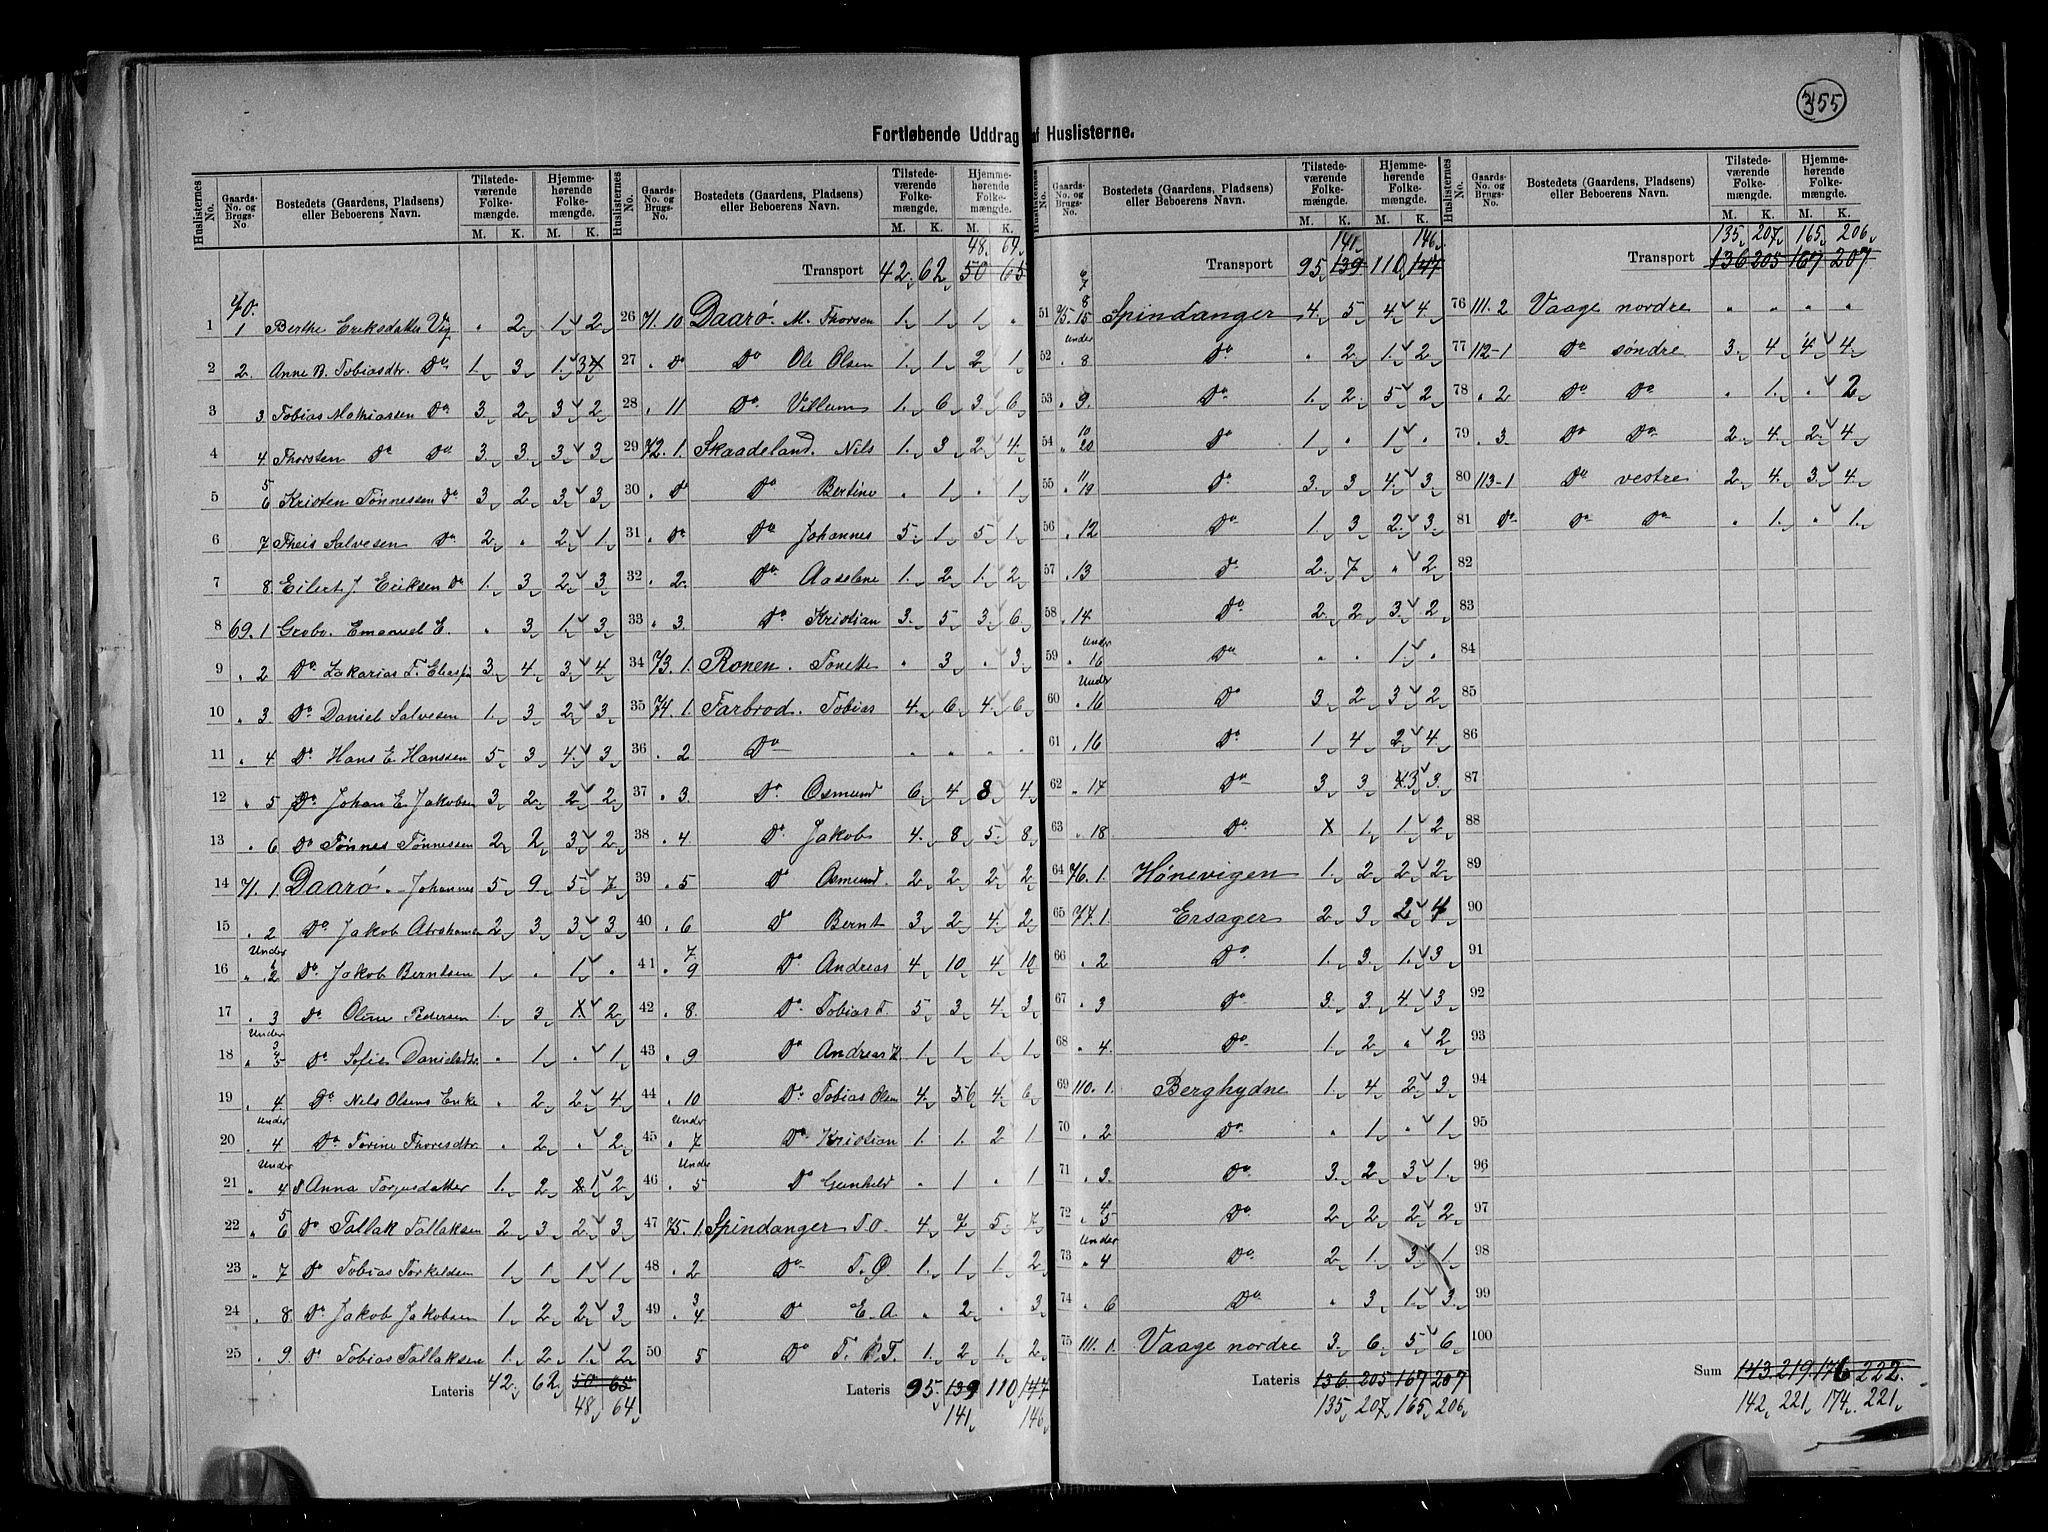 355
Fortløbende Uddrag af Huslisterne.
Huslisternes No. Gaards-No. og Brugs-No. Bostedets (Gaardens, Pladsens) eller Beboerens Navn. Tilstedeværende Folkemængde. M. K. Hjemmehørende Folkemængde. M. K.
70.
1 1 Berthe Eriksdatter Vig " 2 1 2
2 2. Anne B. Tobiasdtr. Do 1 3 1 3 4
3 3 Tobias Mathiassen Do 3 2 3 2
4 4 Thorsten Do Do 3 3 3 3
5 5 6 Kristen Tønnessen Do 3 2 3 3
6 7 Theis Salvesen Do 2 " 2 1
7 8 Eilert J. Eriksen Do 1 3 2 3
8 69. 1 Grobo. Emanuel E. " 3 1 3
9 " 2 Do Zakarias T. 3 4 3 4
10 " 3 Do Daniel Salvesen 1 3 2 3
11 " 4 Do Hans E Hanssen 5 3 4 3
12 " 5 Do Johan E. Jakobsen 3 2 2 2
13 " 6 Do Tønnes Tønnessen 2 2 3 2
14 71. 1. Daarø. Johannes 5 9 5 7
15 " 2 Do Jakob Abrahamsen 2 3 3 3
16 " Under 2 Do Jakob Berntsen 1 " 1 "
17 " 3 Do Oline Pedersen 1 3 1 2
18 " Under 3 4 5 Do Sofie Danielsdtr. " 1 " 1
19 " 4 Do Nils Olsens Enke " 2 2 4
20 " Under 4 Do Torine Thoresdtr. " 2 " 2
21 " Under 4 Do Anna Torjusdatter 1 2 2 1 2
22 " 5 6 Do Tallak Tallaksen 2 3 2 3
23 " 7 Do Tobias Torkeldsen 1 1 1 1
24 " 8 Do Jakob Jakobsen 1 2 2 3
25 " 9 Do Tobias Tallaksen 1 2 1 2
Lateris 42 62 50 65
48 64
Huslisternes No. Gaards-No. og Brugs-No. Bostedets (Gaardens, Pladsens) eller Beboerens Navn. Tilstedeværende Folkemængde. M. K. Hjemmehørende Folkemængde. M. K.
48 64
Transport 42 62 50 65
26 71. 10 Daarø. M. Thorsen 1 1 1 "
27 " Do Do Ole Olsen 1 1 2 1
28 " 11 Do Villum 1 6 3 6
29 72. 1. Skaadeland. Nils 1 3 2 4
30 " Do Do Bertine " 1 " 1
31 " Do Do Johannes 5 1 5 1
32 " 2. Do Aaselene 1 2 1 2
33 " 3. Do Kristian 3 5 3 6
34 73. 1. Ronen. Tonette " 3 " 3
35 74. 1. Farbrod. Tobias 4 6 4 6
36 " 2 Do " " " "
37 " 3. Do Osmund 6 4 8 4
38 " 4 Do Jakob 4 8 5 8
39 " 5 Do Osmund 2 2 2 2
40 " 6 Do Bernt 3 2 4 2
41 " 7 9 Do Andreas 4 10 4 10
42 " 8. Do Tobias T. 5 3 4 3
43 " 9 Do Andreas 1 1 1 1
44 " 10 Do Tobias Olsen 4 6 4 6
45 " Under 7 Do Kristian 1 1 2 1
46 " Under 5 Do Gunhild " 1 " 1
47 75. 1. Spindanger T. O. 4 7 5 7
48 " 2 Do T. O. 1 1 1 2
49 " 3 4 Do E. A. " 2 " 3
50 5 Do T. B. T. 1 2 1 2
Lateris 95 139 110 147
141 146
Huslisternes No. Gaards-No. og Brugs-No. Bostedets (Gaardens, Pladsens) eller Beboerens Navn. Tilstedeværende Folkemængde. M. K. Hjemmehørende Folkemængde. M. K.
141 146
Transport 95 139 110 147
51 75. 6 7 8 15 Spindanger 4 5 4 4
52 " Under 8 Do " 2 1 2
53 " 9. Do 1 2 5 2
54 " 10 20 Do 1 " 1 "
55 " 11 19 Do 3 3 4 3
56 " 12 Do 1 3 2 3
57 " 13 Do 2 7 " 2
58 " 14 Do 2 2 3 2
59 " Under 16 Do " " 1 "
60 " Under 16 Do 3 2 3 2
61 " 16 Do 1 4 2 4
62 " 17 Do 3 3 4 3 3
63 " 18 Do 1 1 2
64 76. 1. Hønevigen 1 2 2 2
65 77. 1 Ersager 2 3 2 4
66 " 2 Do 1 3 1 3
67 " 3 Do 3 3 4 3
68 " 4. Do 1 2 " 2
69 110. 1. Berghydne 1 4 2 3
70 " 2 Do " 1 " 1
71 " 3. Do 3 2 3 1
72 " 4 5 Do 2 2 2 2
73 " Under 4 Do 2 1 3 1
74 " 6 Do " 3 1 3
75 111. 1. Vaage nordre 3 6 5 6
Lateris 136 205 167 207
135 207 165 206
Huslisternes No. Gaards-No. og Brugs-No. Bostedets (Gaardens, Pladsens) eller Beboerens Navn. Tilstedeværende Folkemængde. M. K. Hjemmehørende Folkemængde. M. K.
135 207 165 206
Transport 136 205 167 207
76 111. 2 Vaage nordre " " " "
77 112-1 Do søndre 3 4 4 4
78 " 2 Do Do " 1 " 2
79 " 3. Do Do 2 4 2 4
80 113-1 Do vestre 2 4 3 4
81 Do Do Do " 1 " 1
82
83
84
85
86
87
88
89
90
91
92
93
94
95
96
97
98
99
100
Sum 143 219 176 222
142 221 174 221